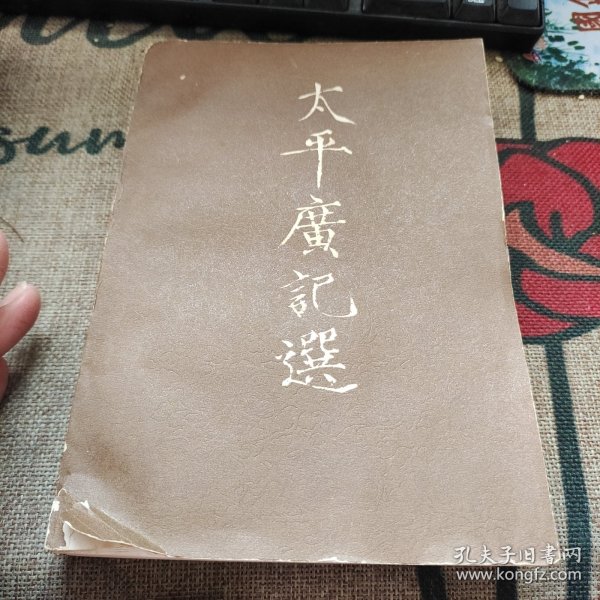 太平廣記選
sum
孔夫子旧書网
www.kongfz.com